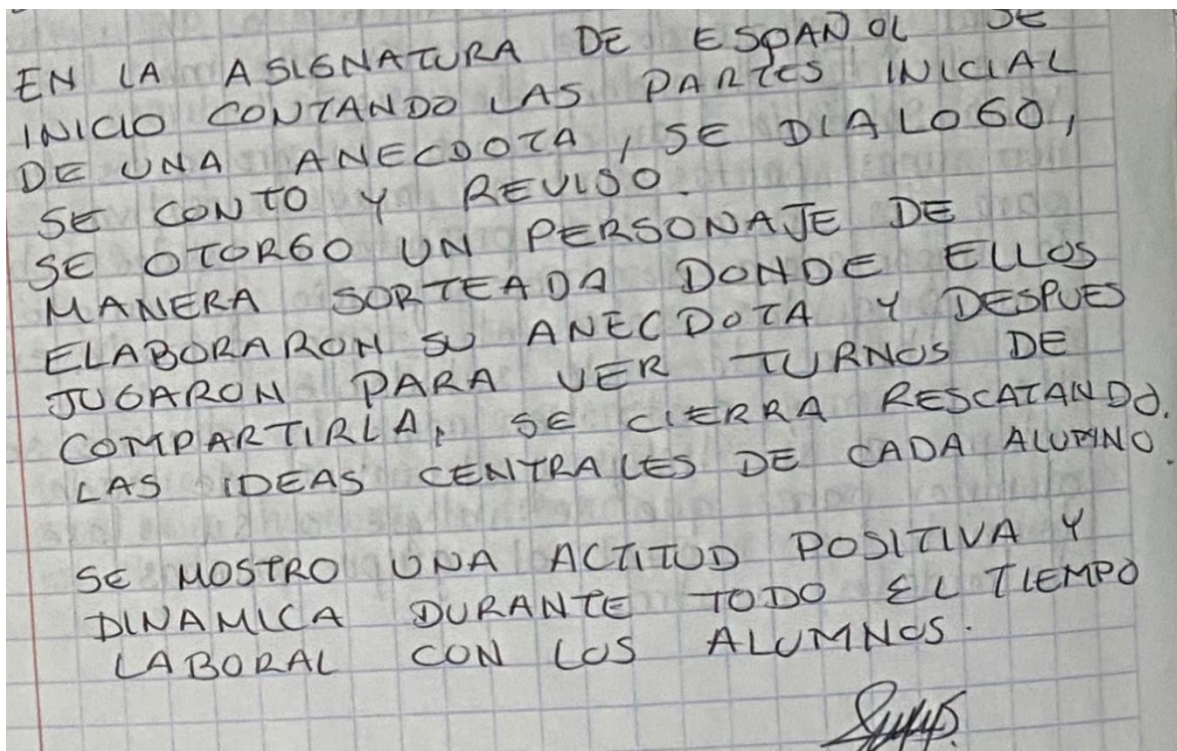 EN LA ASIGNATURA DE ESPAÑOL SE
INICIO CONTANDO LAS PARTES INICIAL
DE UNA ANECDOTA, SE DIALOGO,
SE CONTO Y REVISO.
SE OTORGO UN PERSONAJE DE
MANERA SORTEADA DONDE ELLOS
ELABORARON SU ANECDOTA Y DESPUES
JUGARON PARA VER TURNOS DE
COMPARTIRLA, SE CIERRA RESCATANDO.
LAS IDEAS CENTRALES DE CADA ALUMNO.
SE MOSTRO UNA ACTITUD POSITIVA Y
DINAMICA DURANTE TODO EL TIEMPO
LABORAL CON LOS ALUMNOS.